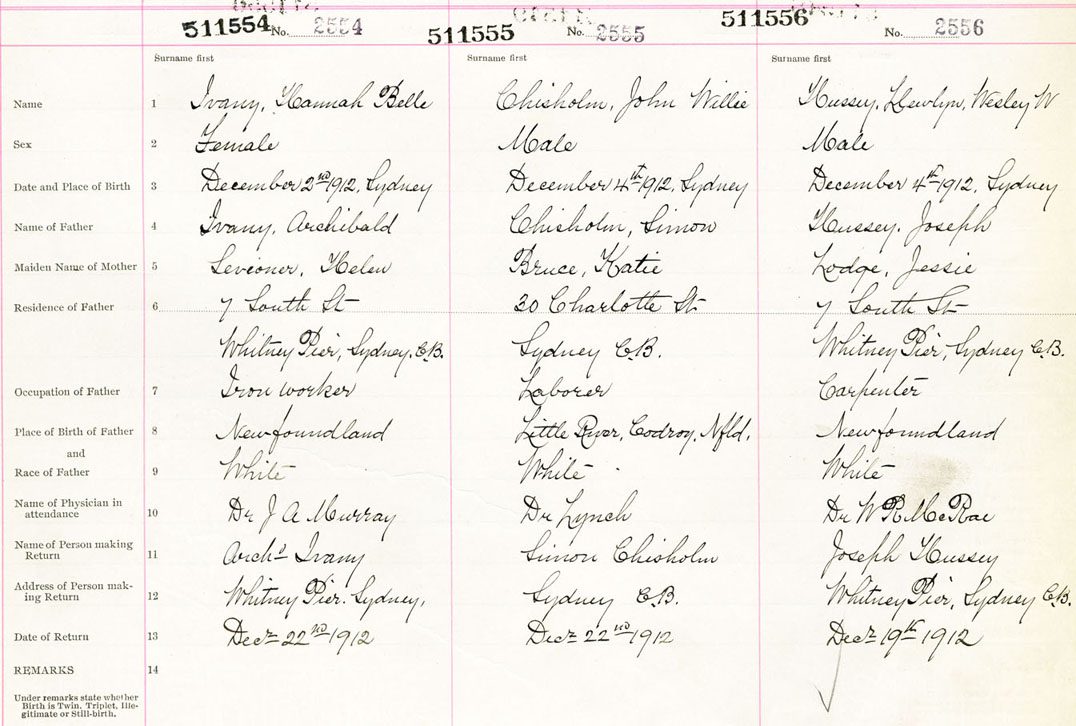 511554 No. 2554 511555 No. 2555 511556 No. 2556
Surname first Surname first Surname first
Name 1 Ivany, Hannah Belle Chisholm, John Willie Hussey, Llewlyn, Wesley W
Sex 2 Female Male Male
Date and Place of Birth 3 December 2nd 1912, Sydney December 4th 1912, Sydney December 4th 1912, Sydney
Name of Father 4 Ivany, Archibald Chisholm, Simon Hussey, Joseph
Maiden Name of Mother 5 Helen Bruce, Katie Lodge, Jessie
Residence of Father 6 7 South St 30 Charlotte St 7 South St
Whitney Pier, Sydney, C.B. Sydney C.B. Whitney Pier, Sydney C.B.
Occupation of Father 7 Iron worker Laborer Carpenter
Place of Birth of Father 8 Newfoundland Little River, Codroy, Nfld. Newfoundland
and
Race of Father 9 White White White
Name of Physician in
attendance 10 Dr J A Murray Dr Lynch Dr W R McRae
Name of Person making
Return 11 Archd Ivany Simon Chisholm Joseph Hussey
Address of Person mak-
ing Return 12 Whitney Pier. Sydney, Sydney C.B. Whitney Pier, Sydney C.B.
Date of Return 13 Decr 22nd 1912 Decr 22nd 1912 Decr 19th 1912
REMARKS 14
Under remarks state whether
Birth is Twin, Triplet, Ille-
gitimate or Still-birth.